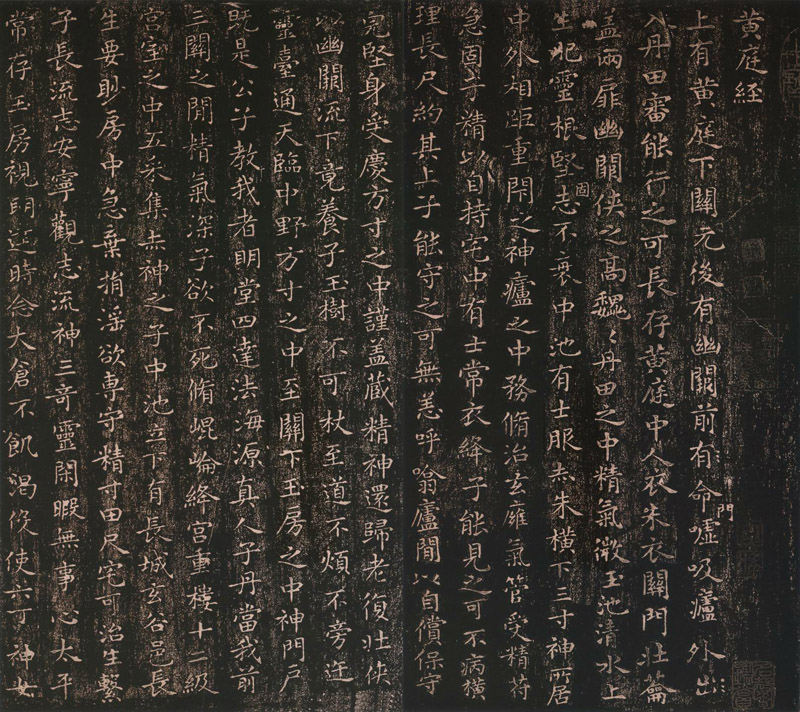 黄庭経
上有黄庭下關元後有幽闕前有命門嘘吸廬外出
入丹田審能行之可長存黄庭中人衣朱衣關門壮蘥
盖兩扉幽闕侠之髙魏々丹田之中精氣微玉池清水上
生肥靈根堅固志不衰中池有士服赤朱横下三寸神所居
中外相距重閇之神廬之中務脩治玄㢕氣管受精苻
急固子精以自持宅中有士常衣絳子能見之可不病横
理長尺約其上子能守之可無恙呼噏廬閒以自償保守
完堅身受慶方寸之中謹盖藏精神還歸老復壮侠
以幽闕流下竟養子玉樹不可杖至道不煩不旁迕
靈臺通天臨中野方寸之中至關下玉房之中神門戸
既是公子教我者明堂四達法海源真人子丹當我前
三關之閒精氣深子欲不死脩崐崘絳宫重樓十二級
宫室之中五采集赤神之子中池立下有長城玄谷邑長
生要眇房中急棄捐滛欲専守精寸田尺宅可治生繫
子長流志安寧觀志流神三奇靈閑暇無事心太平
常存玉房視明達時念大倉不飢渇伇使六丁神女